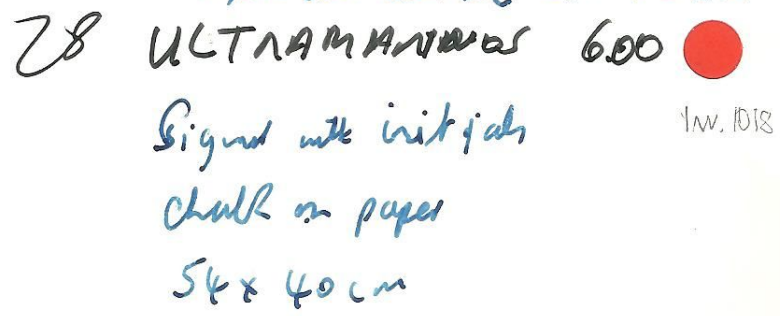 28 ULTRAMARINOS 600
Inv. 1018
Signed with initials
chalk on paper
54 x 40 cm